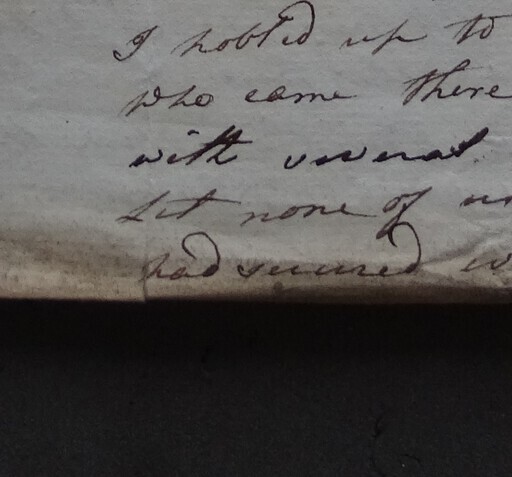 I hobl'd up to
who came there
with several
Let none of
had secured